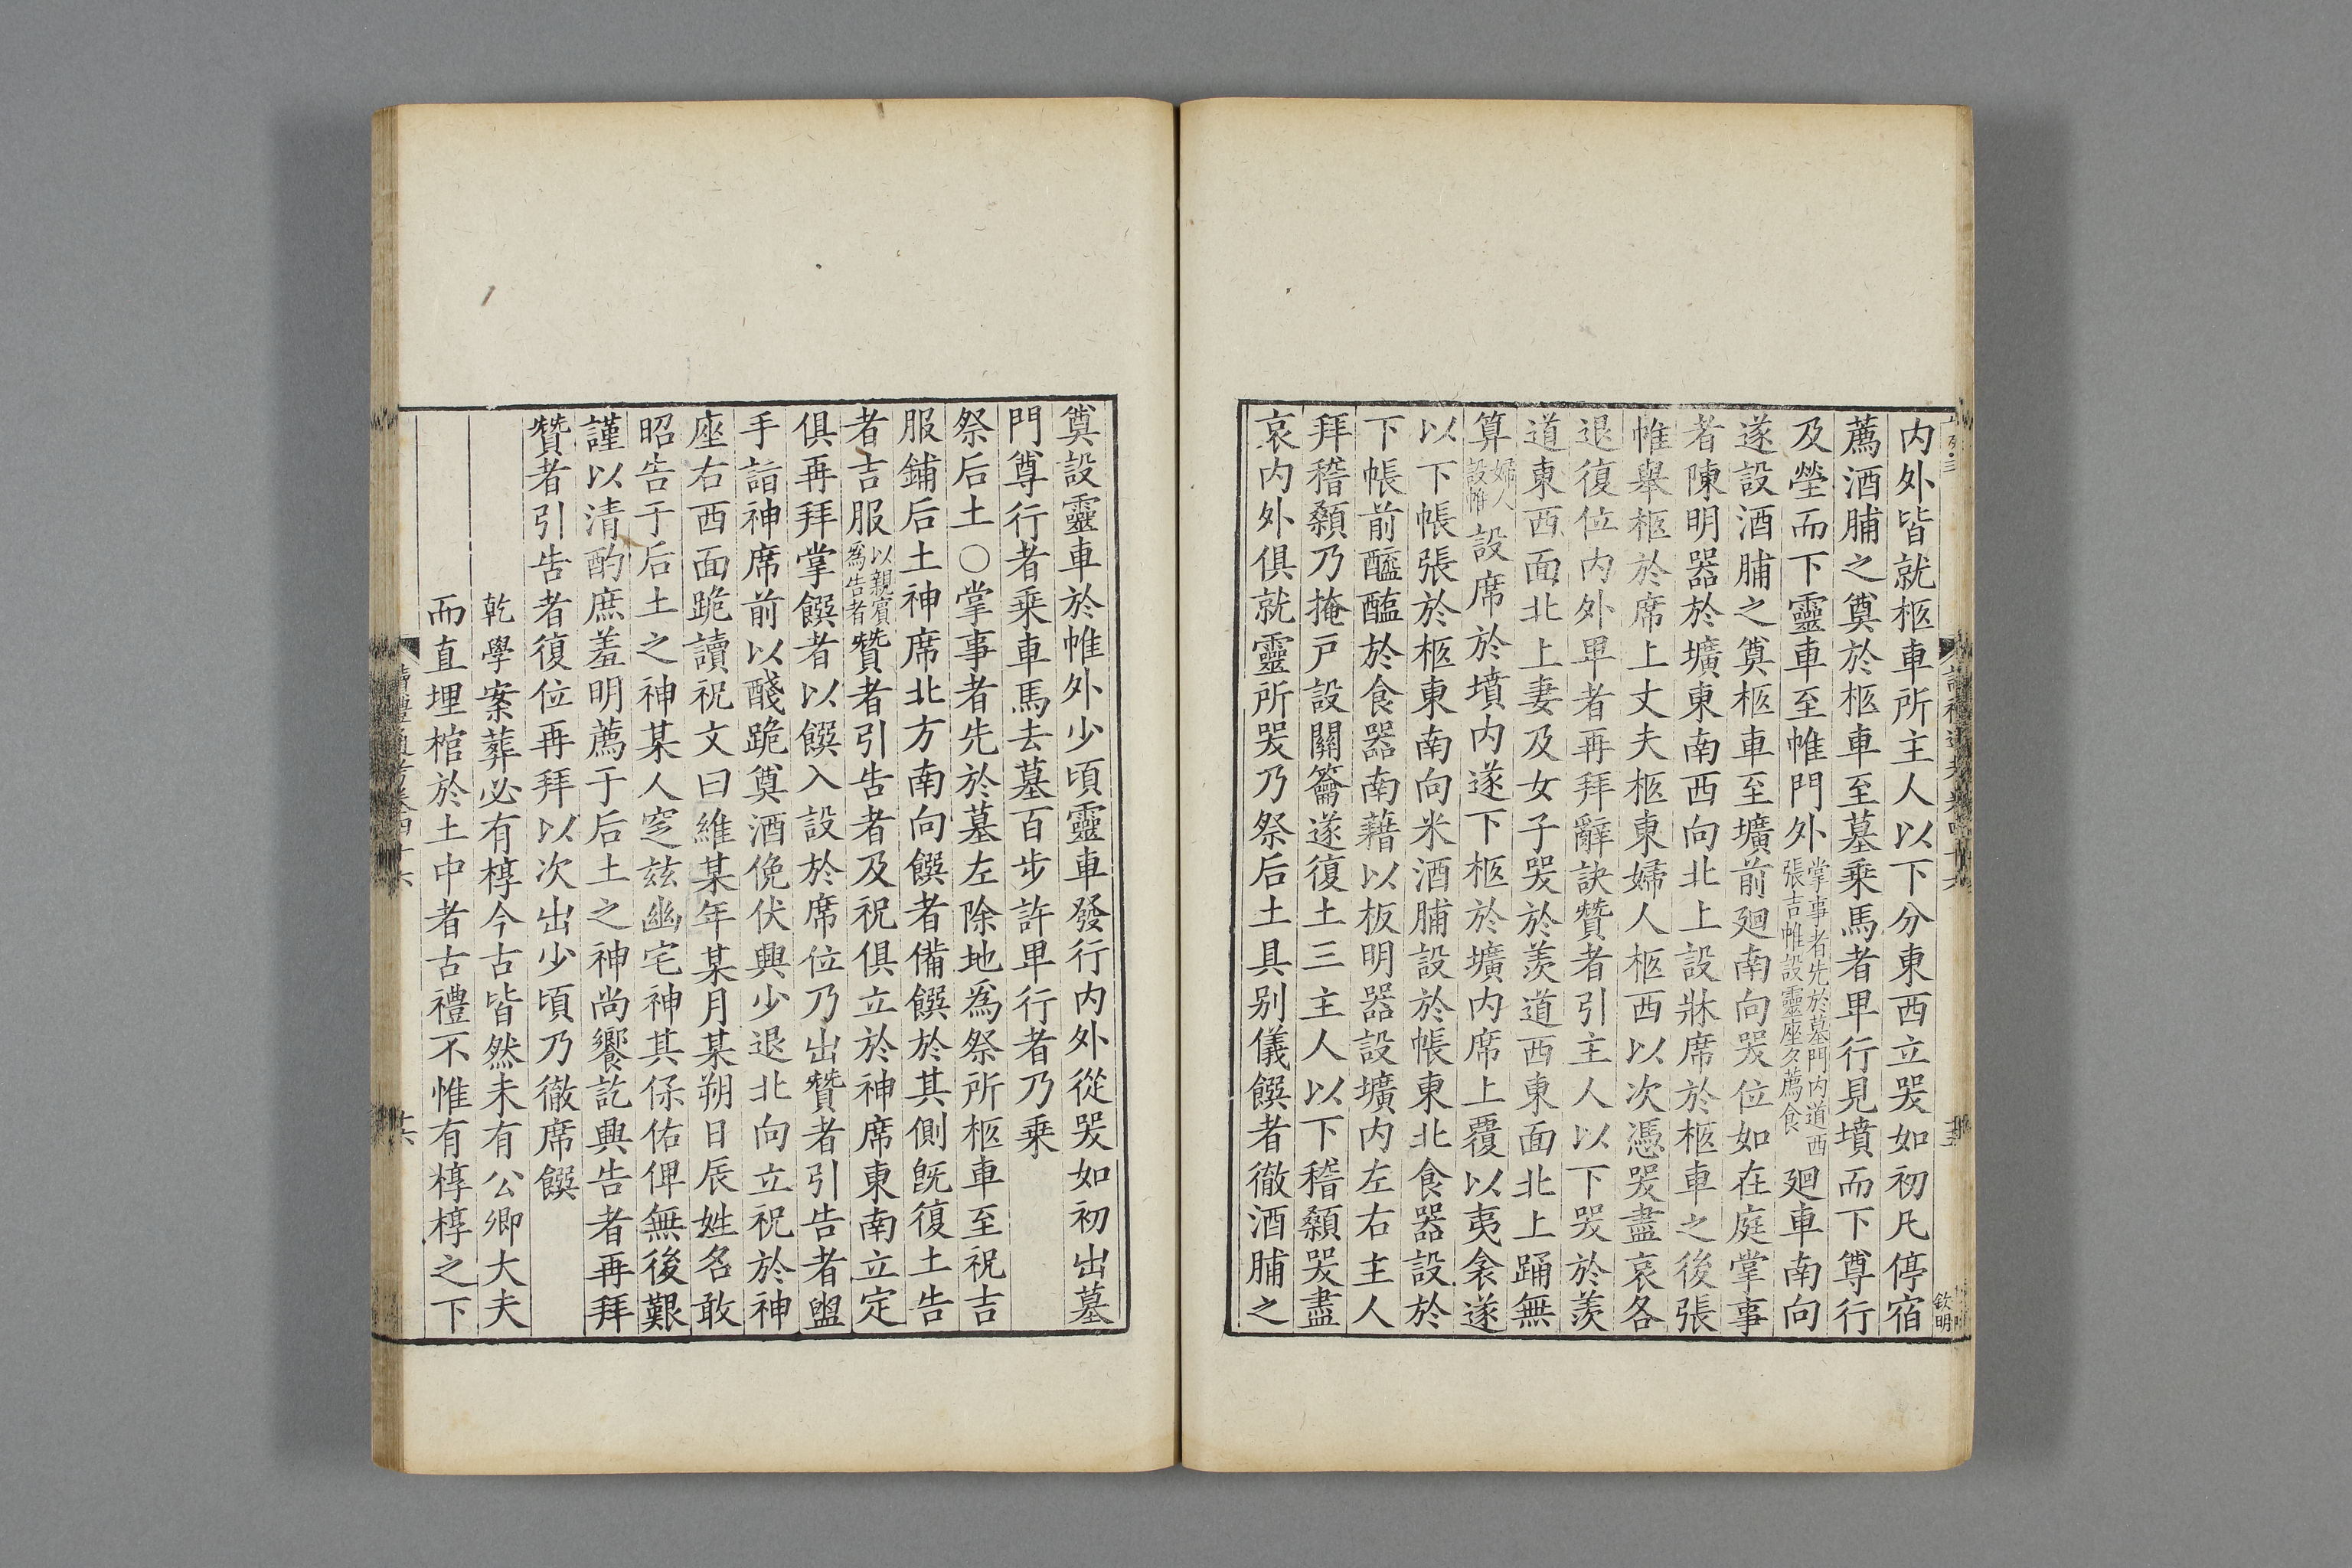 内外皆就柩車所主人以下分東西立哭如初凡停宿
薦酒脯之奠於柩車至墓乗馬者卑行見墳而下尊行
及塋而下靈車至帷門外掌事者先於墓門内道西張吉帷設靈座久薦食廻車南向
遂設酒脯之奠柩車至壙前廻南向哭位如在庭掌事
者陳明器於壙東南西向北上設牀席於柩車之後張
帷舉柩於席上丈夫柩東婦人柩西以次憑哭盡哀各
退復位内外卑者再拜辭訣贊者引主人以下哭於羡
道東西面北上妻及女子哭於羡道西東面北上踊無
算婦人設帷設席於墳内遂下柩於壙内席上覆以夷衾遂
以下帳張於柩東南向米酒脯設於帳東北食器設於
下帳前醯醢於食器南藉以板明器設壙内左右主人
拜稽顙乃掩戶設關籥遂復土三主人以下稽顙哭盡
哀内外俱就靈所哭乃祭后土具别儀饌者徹酒脯之
奠設靈車於帷外少頃靈車發行内外從哭如初出墓
門尊行者乗車馬去墓百步許卑行者乃乗
祭后土○掌事者先於墓左除地爲祭所柩車至祝吉
服鋪后土神席北方南向饌者備饌於其側旣復土告
者吉服以親賓爲告者贊者引告者及祝俱立於神席東南立定
俱再拜掌饌者以饌入設於席位乃出贊者引告者盥
手詣神席前以醆跪奠酒俛伏興少退北向立祝於神
座右西面跪讀祝文曰維某年某月某朔日辰姓名敢
昭告于后土之神某人窆兹幽宅神其保佑俾無後艱
謹以清酌庶羞明薦于后土之神尚饗訖興告者再拜
贊者引告者復位再拜以次出少頃乃徹席饌
乾學案葬必有椁今古皆然未有公卿大夫
而直埋棺於土中者古禮不惟有椁椁之下